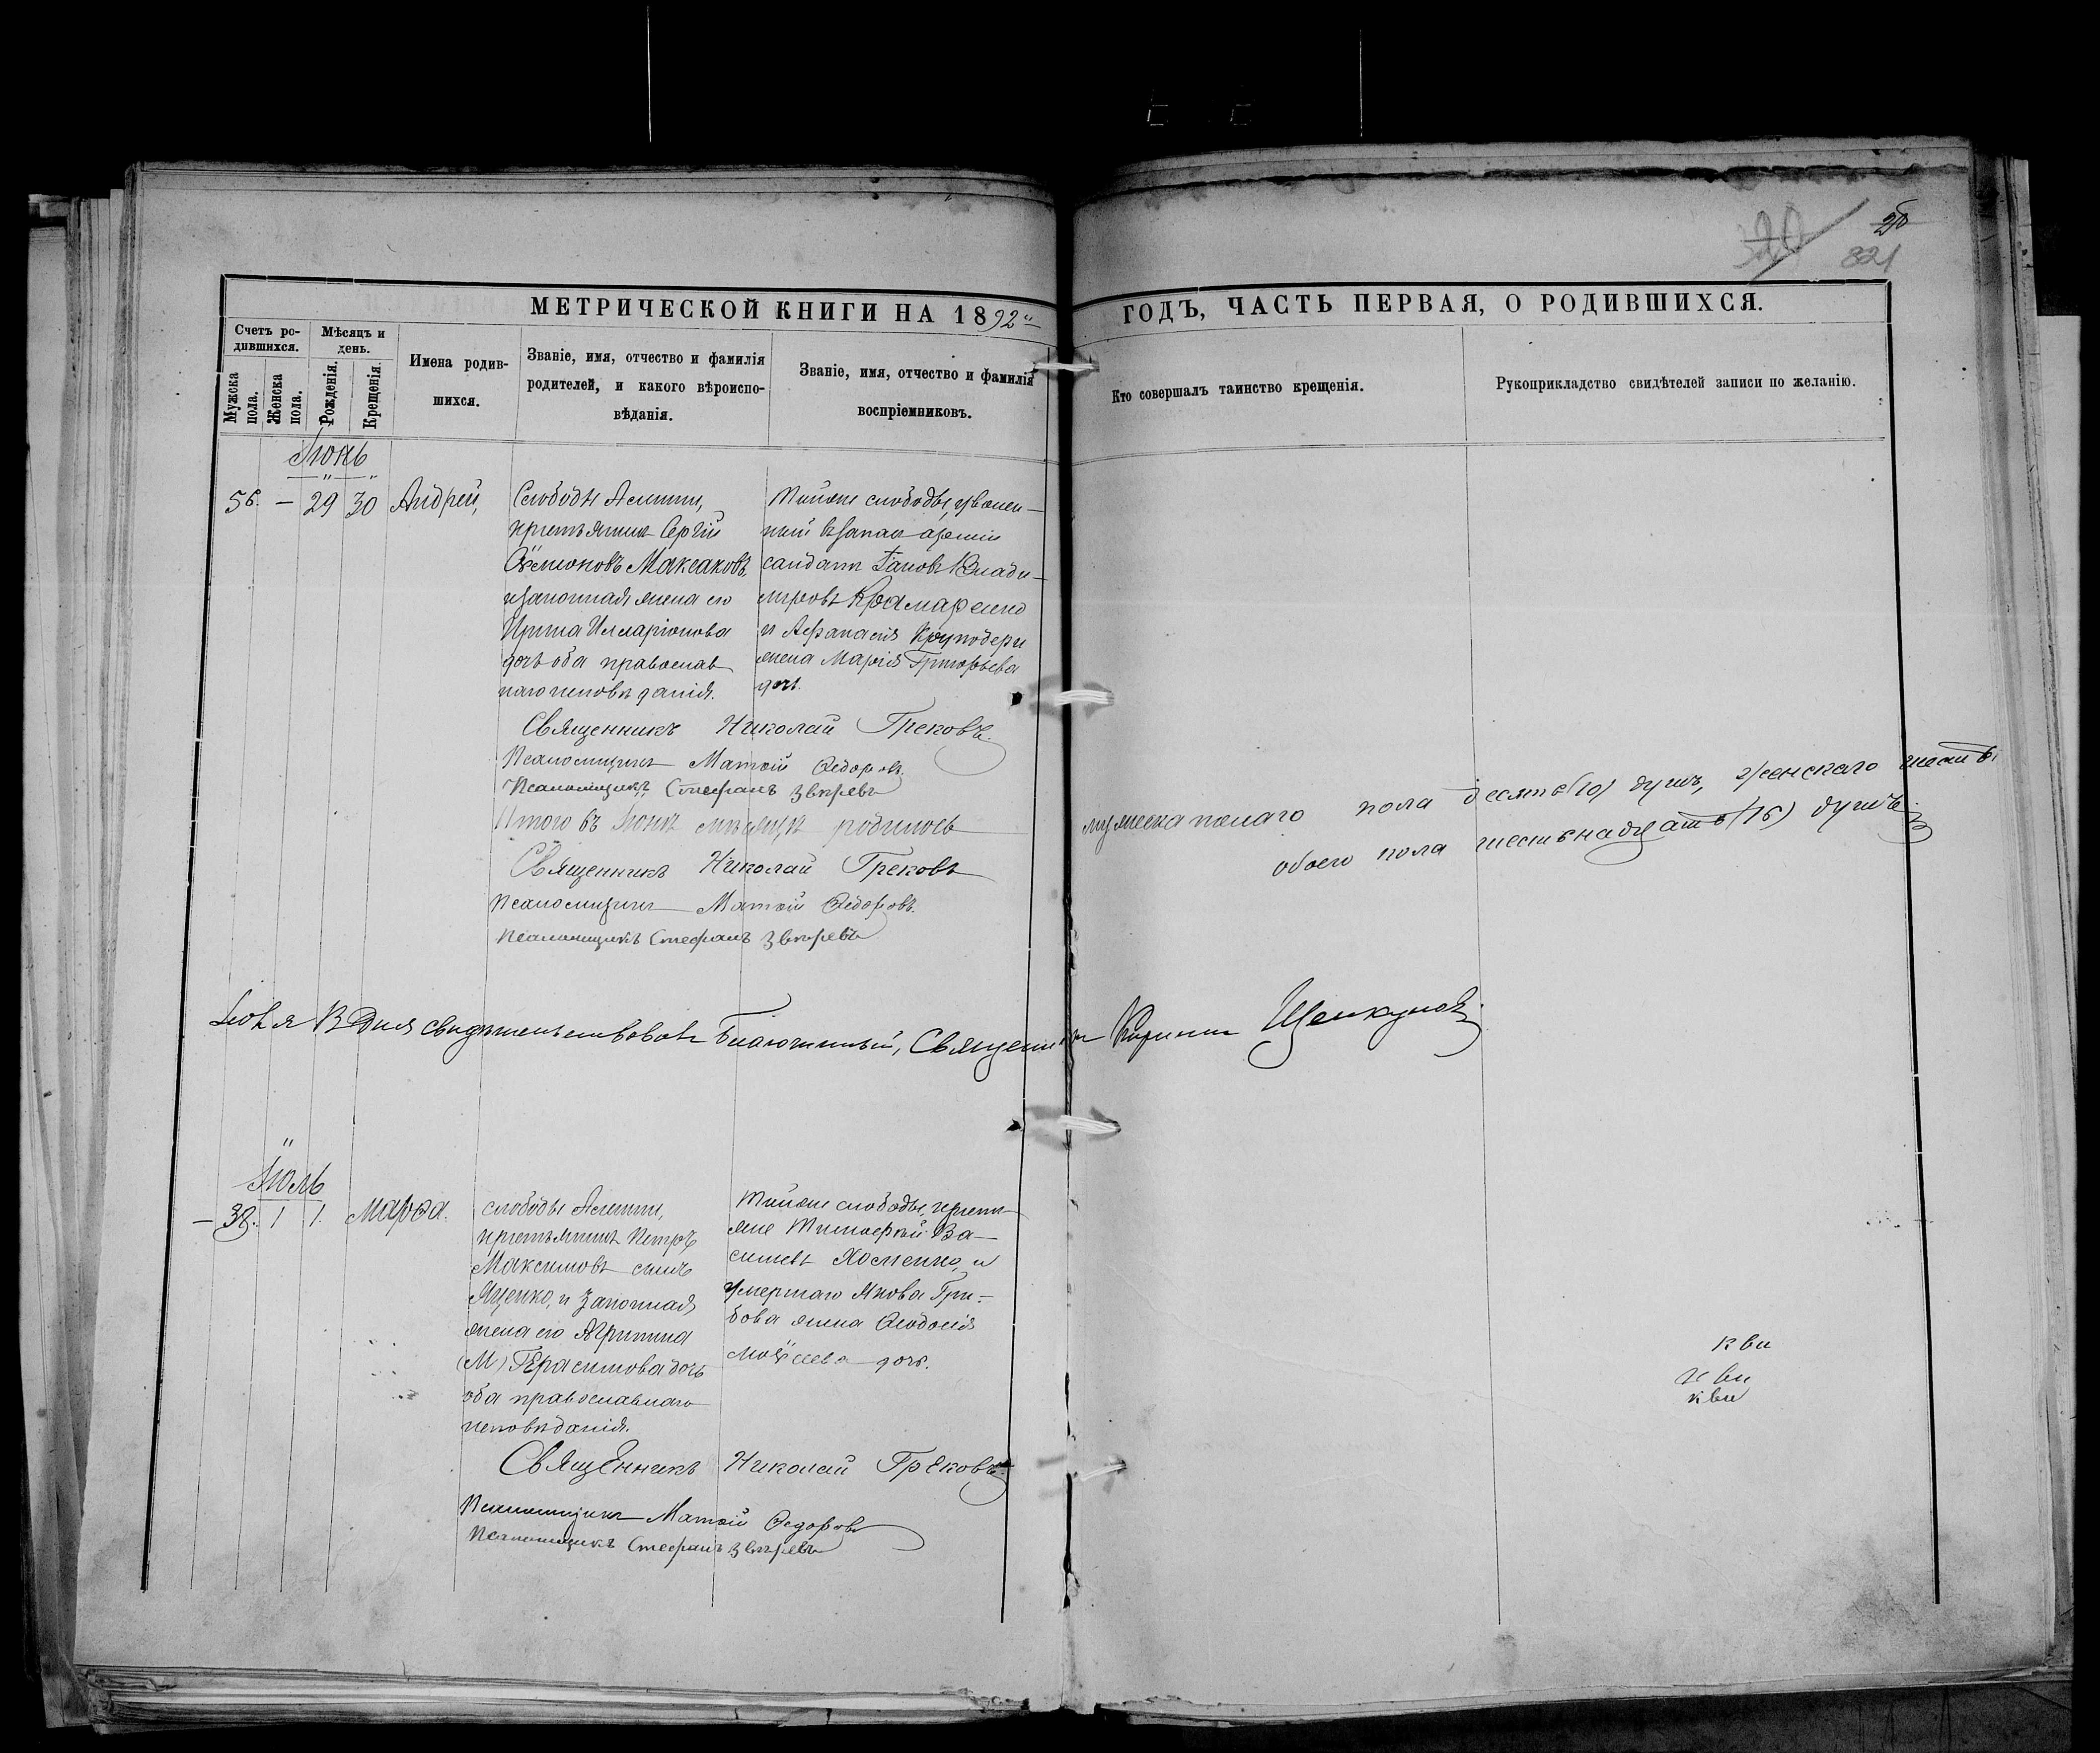 20
821
МЕТРИЧЕСКОЙ КНИГИ НА 1892 ГОДЪ, ЧАСТЬ ПЕРВАЯ, О РОДИВШИХСЯ.
Счетъ ро-
дившихся.
Мужска пола.
Женска пола.
Мѣсяцъ и
день.
Рожденія.
Крещенія.
Имена родив-
шихся.
Званіе, имя, отчество и фамилія
родителей, и какого вѣроиспо-
вѣданія.
Званіе, имя, отчество и фамилія
воспріемниковъ.
Кто совершалъ таинство крещенія.
Рукоприкладство свидѣтелей записи по желанію.
Іюнь
56. — 29 30 Андрей,
Слободы
крестьянинъ Сергій
Максаковъ,
и законная жена его
Ирина Илларіонова
дочь оба православ
наго исповѣданія.
Тойже слободы, уволен-
ный въ запас арміи
солдатъ Іаковъ Влади-
міровъ Крамаренко
и Афанасія
жена Марія Григорьева
дочь.
Священникъ Николай Грековъ.
Псаломщикъ Матѳій Ѳедоровъ.
Псаломщикъ Стефанъ Звѣревъ
Итого въ Іюнѣ мѣсяцѣ родилось мужеска пола десять (10) душъ, женскаго шесть
обоего пола шестьнадцать (16) душъ
Священникъ Николай Грековъ
Псаломщикъ Матѳій Ѳедоровъ.
Псаломщикъ Стефанъ Звѣревъ
Дня свидѣтельствовалъ Благочинный, Священникъ Щелкуновъ
Іюль
— 38. 1 1. Марѳа.
слободы
крестьянинъ Петръ
Максимовъ сынъ
Яценко, и законная
жена его Агрипина
(М) Герасимова дочь
оба православнаго
исповѣданія.
Тойже слободы, кресть-
яне Тимофей Ва-
сильевъ Хоменко, и
умершаго Якова Гри-
бова жена Ѳеодосія
Моѵсеева дочь.
Священникъ Николай Грековъ.
Псаломщикъ Матѳій Ѳедоровъ
Псаломщикъ Стефанъ Звѣревъ